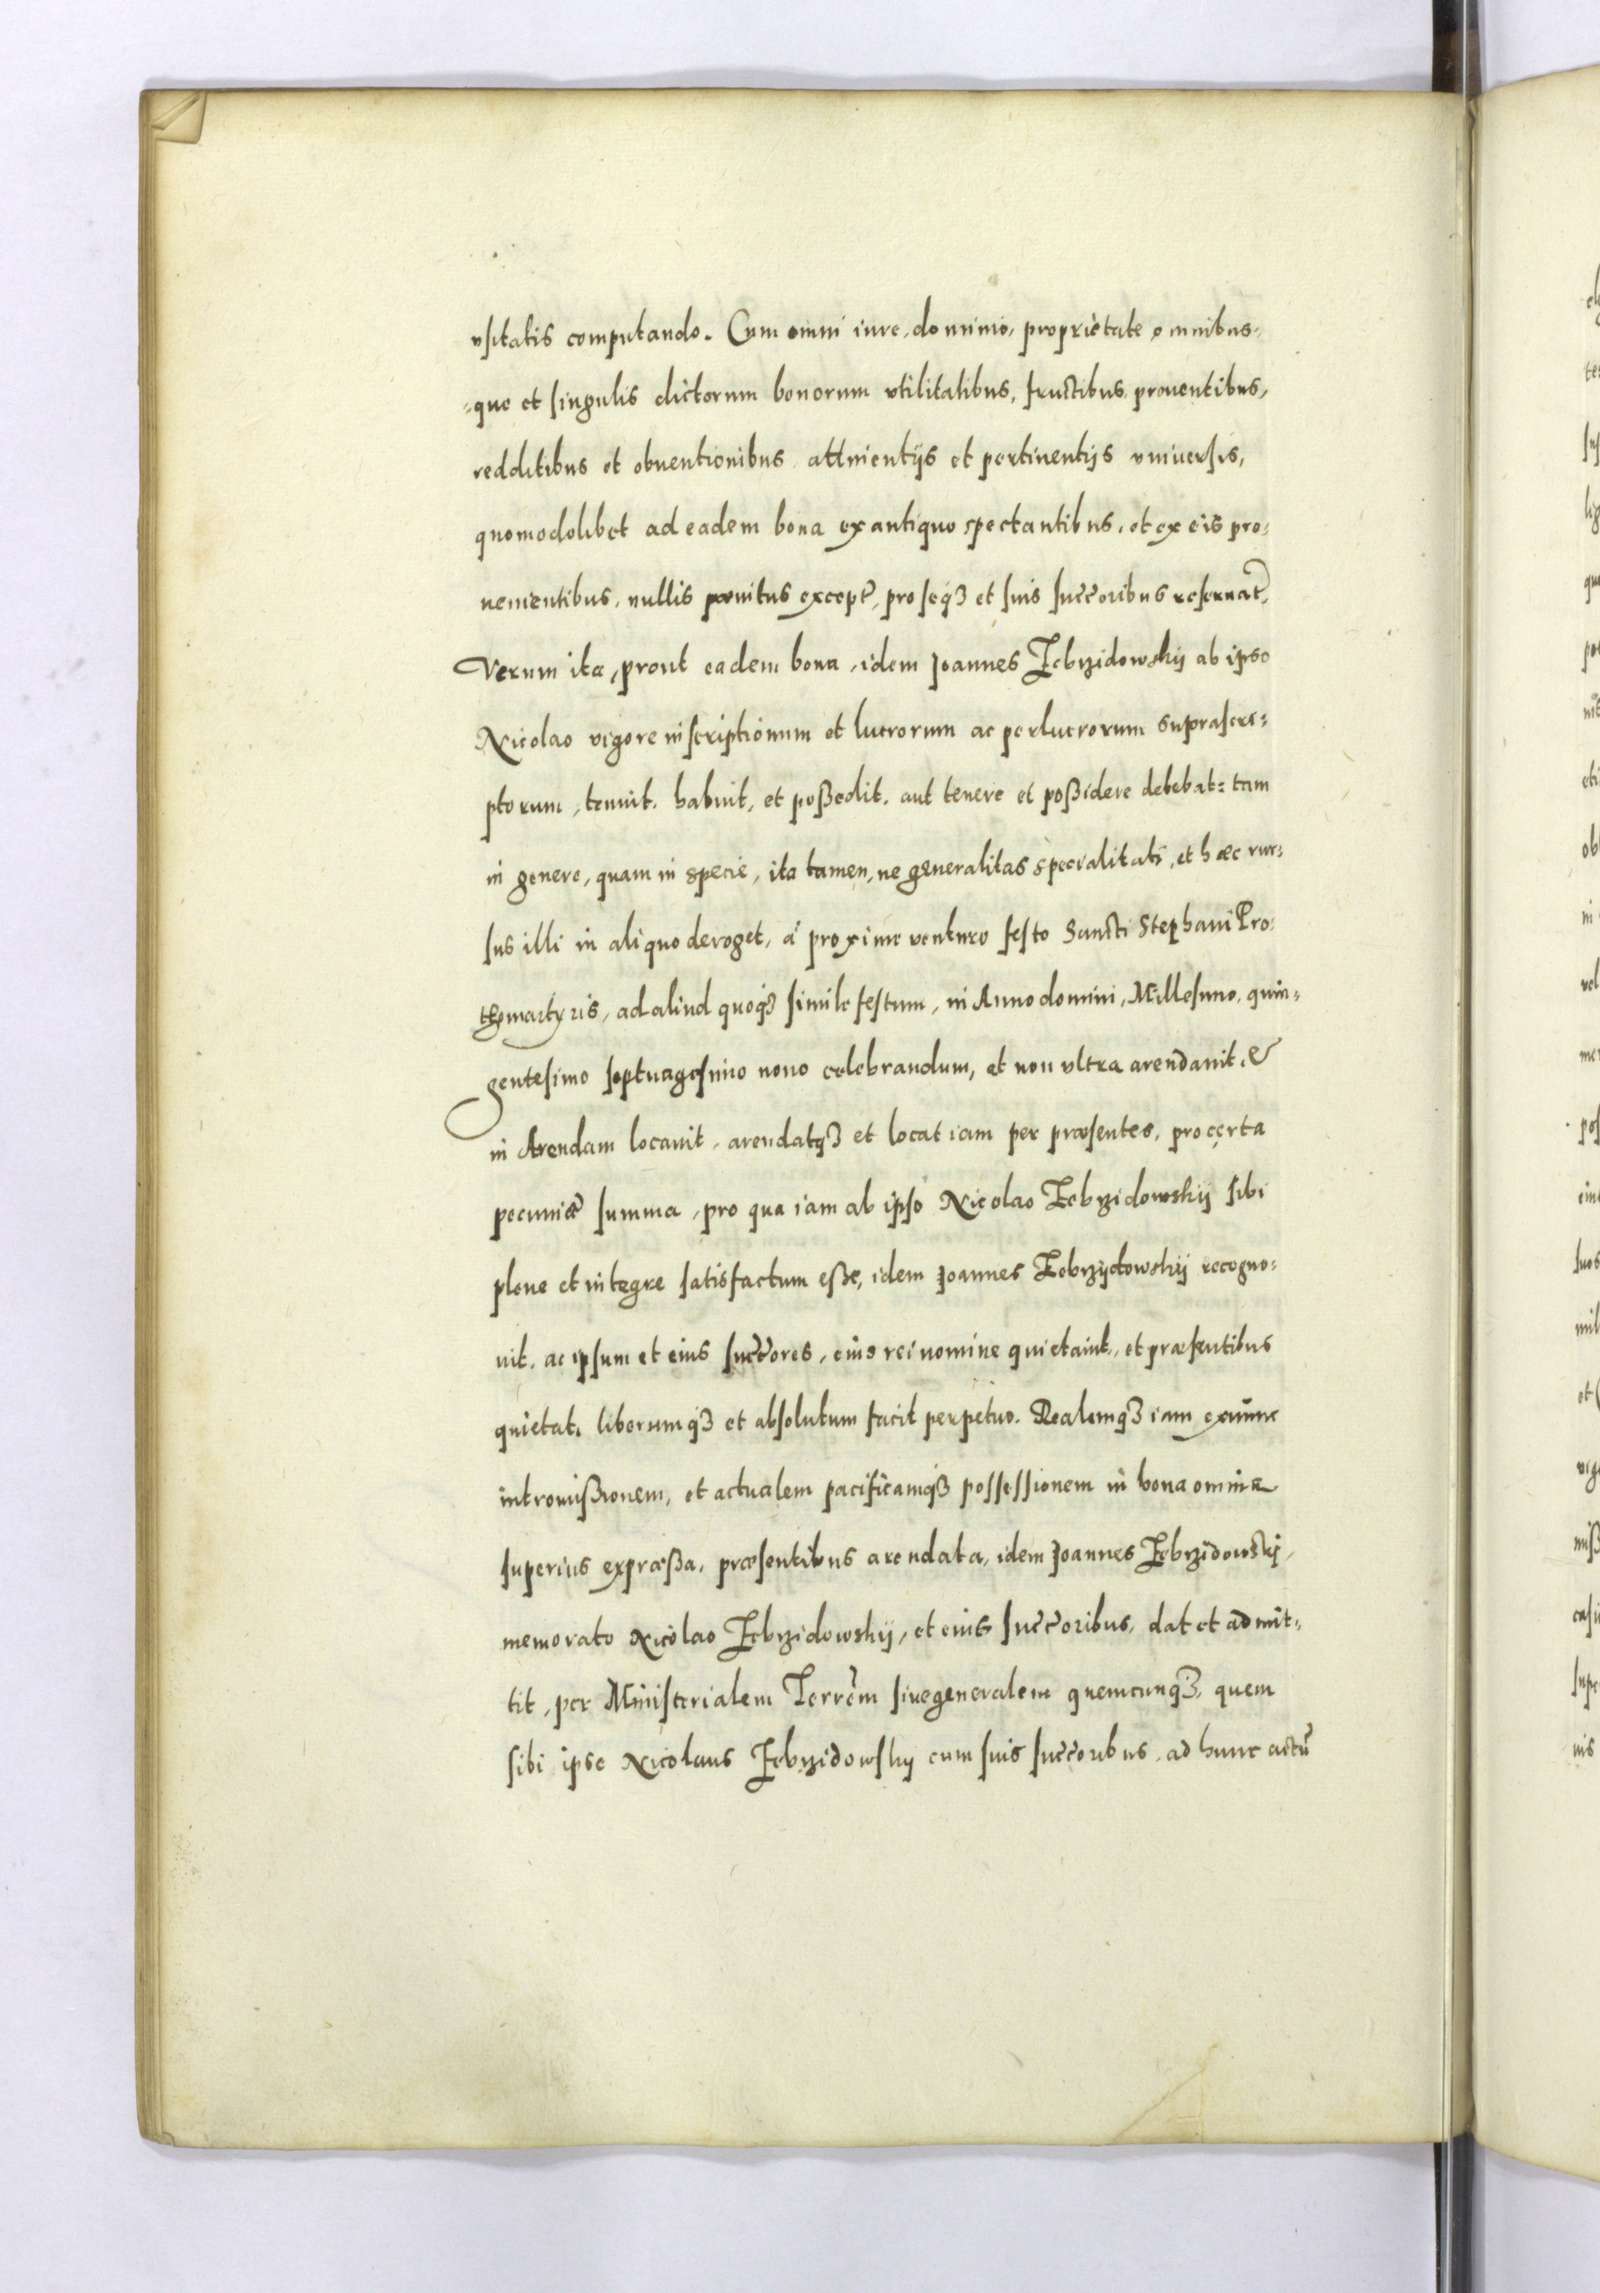 vsitatis computando. Cum omni iure, dominio, proprietate omnibus=
=que et singulis dictorum bonorum vtilitatibus, fructibus, prouentibus,
redditibus et obuentionibus, attinentijs et pertinentijs vniuersis,
quomodolibet ad eadem bona ex antiquo spectantibus, et ex eis pro=
uenientibus, nullis pœnitus except, pro seqȝ et suis succoribus reseruat,
Verum ita, prout eadem bona, idem Joannes Zebrzidowskij ab ipso
Nicolao vigore inscriptionum et lucrorum ac perlucrorum suprascri=
ptorum, tenuit, habuit, et poßedit, aut tenere et poßidere debebat: tam
in genere, quam in specie, ita tamen, ne generalitas specialitati, et hæc rur=
sus illi in aliquo deroget, á proxime venturo festo Sancti Stephani Pro=
thomartyris, ad aliud quoqȝ simile festum, in Anno domini, Millesimo, quin=
gentesimo septuagesimo nono celebrandum, et non vltra arendauit, &
in Arendam locauit, arendatqȝ et locat iam per præsentes, pro certa
pecuniæ summa, pro qua iam ab ipso Nicolao Zebrzidowskij sibi
plene et integre satisfactum eße, idem Joannes Zebrzydowskij recogno=
uit, ac ipsum et eius succores, eius rei nomine quietauit, et præsentibus
quietat, liberumqȝ et absolutum facit perpetuo. Realemqȝ iam exnunc
intromißionem, et actualem pacificamqȝ possessionem in bona omnia
superius expræßa, præsentibus arendata, idem Joannes Zebrzidowskj,
memorato Nicolao Zebrzidowskij, et eius succoribus, dat et admit=
tit, per Ministerialem Terrem siue generalem quemcunqȝ, quem
sibi ipse Nicolaus Zebrzidowskij cum suis succoribus, ad hunc actū